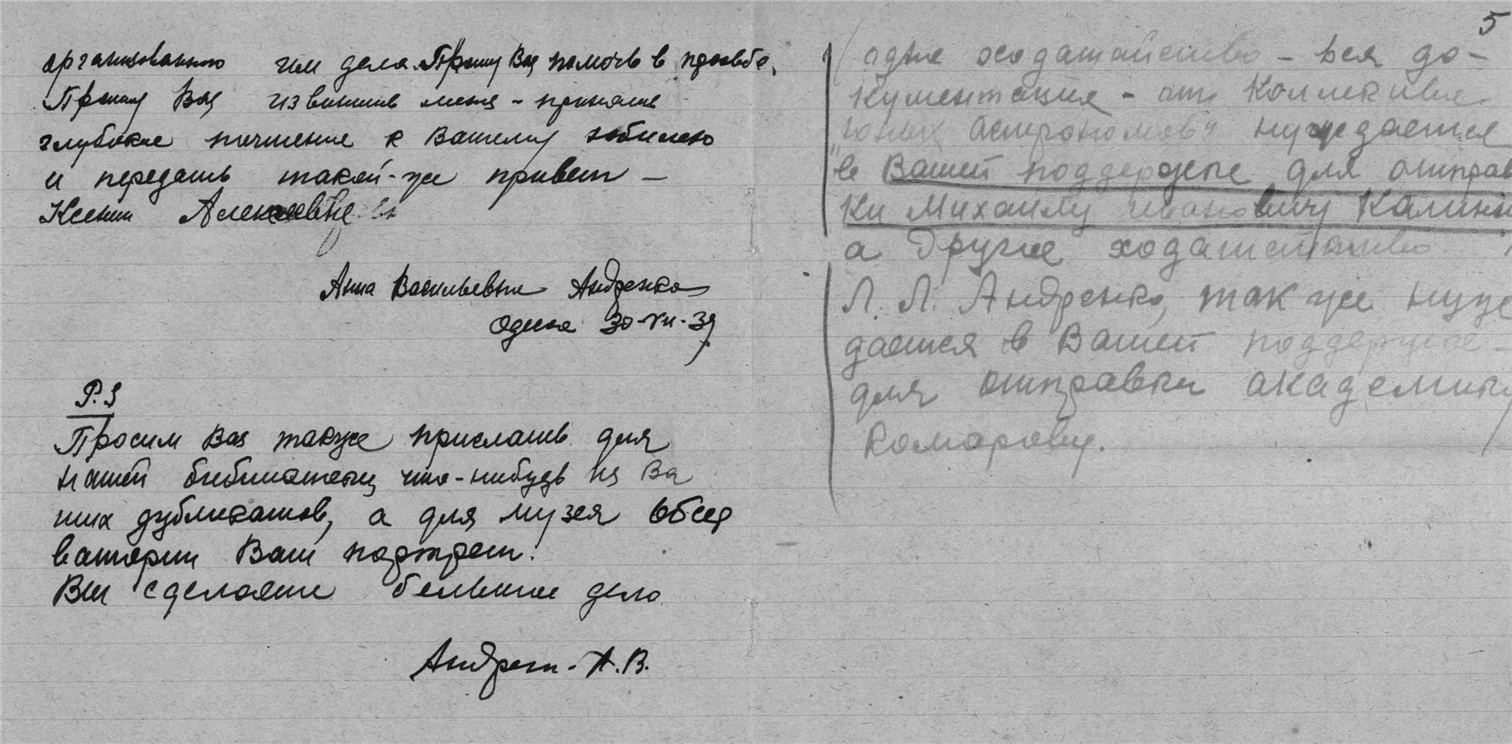 организованного им дела. Прошу Вас помочь в просьбе.
Прошу Вас извинить меня - принять
глубокое почтение к Вашему юбилею
и передать такой-же привет -
Ксении Алексеевне
Анна Васильевна Андренко
Одесса 30-VII-39
P.S
Просим Вас также прислать для
нашей библиотеки что-нибудь из Ва
ших дубликатов, а для музея Обсер
ватории Ваш портрет.
Вы сделаете большое дело
Андренк- А.В.
5
(одно ходатайство - вся до-
кументация - от Коллектива
"юных астрономов" нуждается
в Вашей поддержке для отправ
ки Михаилу Ивановичу Калини
а Другое ходатайство
Л. Л. Андренко, так же нуж
дается в Вашей поддержке -
для отправки академику
Комарову.